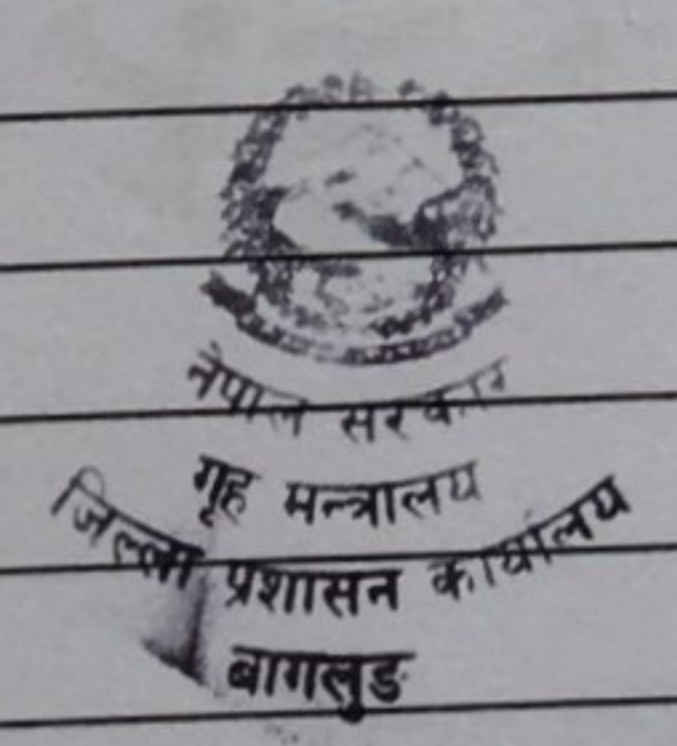 नेपाल सरकार
गृह मन्त्रालय
जिल्ला प्रशासन कार्यालय
बागलुङ